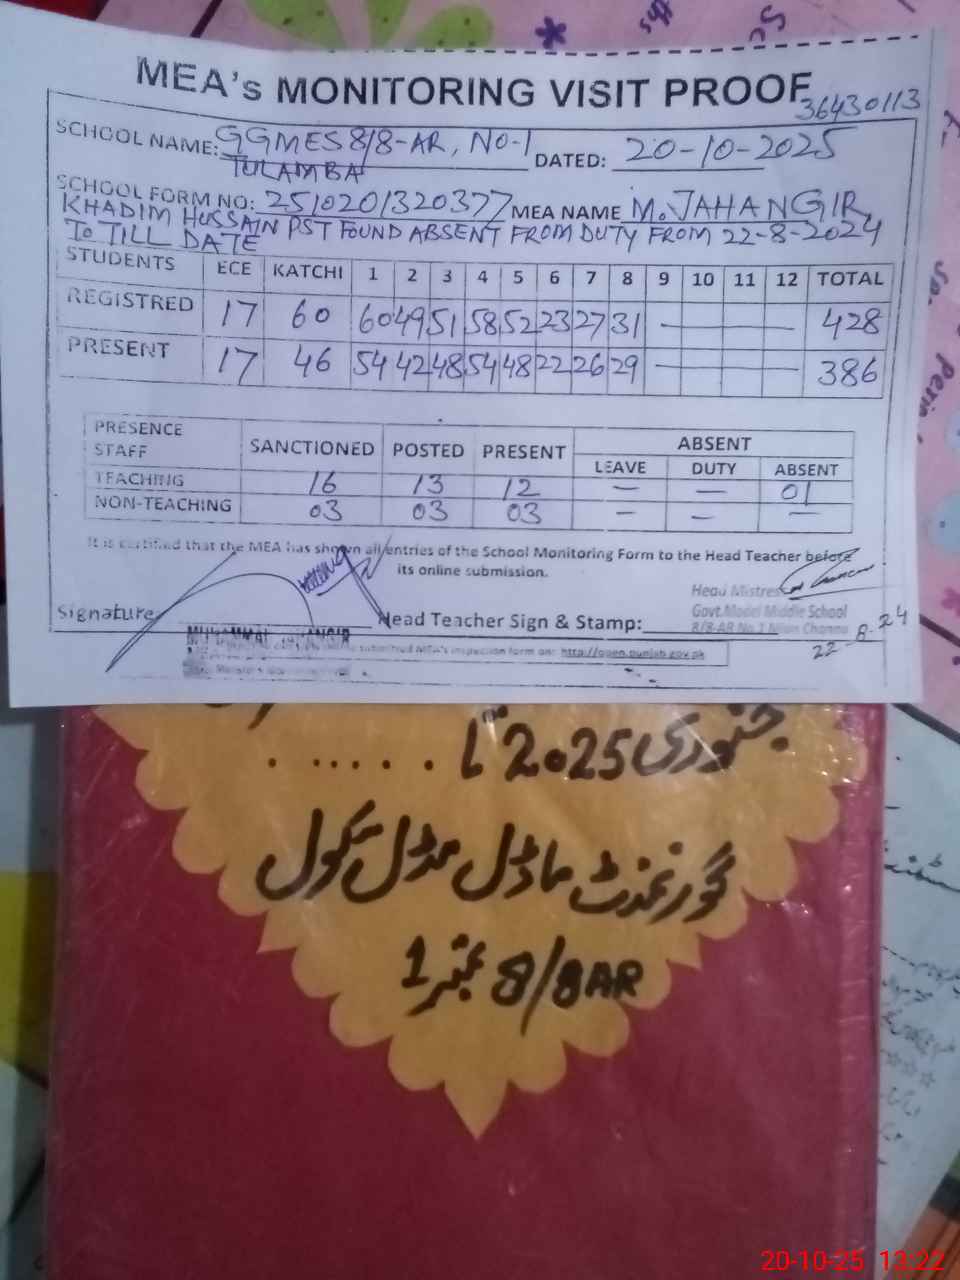 MEA's MONITORING VISIT PROOF
36430113
SCHOOL NAME: GGMES 8/8-AR, NO-1 DATED: 20-10-2025
TULAMBA
SCHOOL FORM NO: 2510201320377 MEA NAME M.JAHANGIR
KHADIM HUSSAIN PST FOUND ABSENT FROM DUTY FROM 22-8-2024
TO TILL DATE
STUDENTS ECE KATCHI 1 2 3 4 5 6 7 8 9 10 11 12 TOTAL
REGISTRED 17 60 60 49 51 58 52 23 27 31 — 428
PRESENT 17 46 54 42 48 54 48 22 26 29 — 386
PRESENCE
STAFF SANCTIONED POSTED PRESENT ABSENT
LEAVE DUTY ABSENT
TEACHING 16 13 12 — — 01
NON-TEACHING 03 03 03 — — —
It is certified that the MEA has shown all entries of the School Monitoring Form to the Head Teacher before
its online submission.
Head Mistress
Govt. Model Middle School
8/8-AR No.1 Mian Channu
Signature Head Teacher Sign & Stamp:
22-8-24
MUHAMMAD JAHANGIR
submitted MEA's inspection form on: http://open.punjab.gov.pk
جنوری 2025 تا ......
گورنمنٹ ماڈل مڈل سکول
8/8AR نمبر 1
20-10-25 13:22